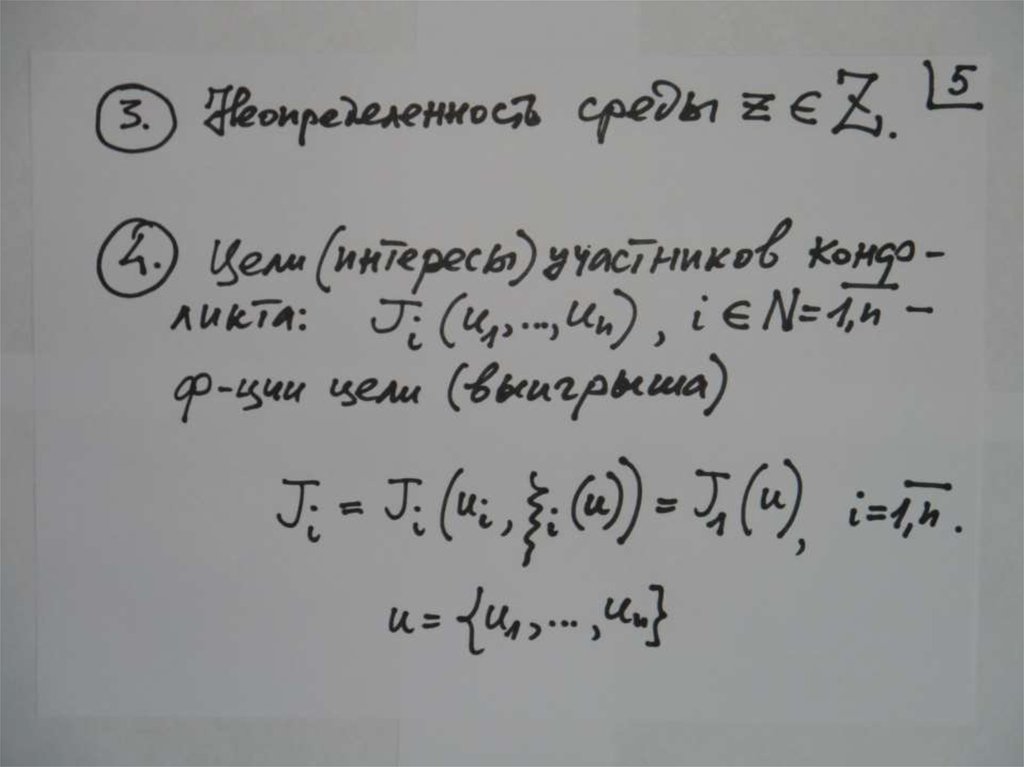 3. Неопределенность среды z ∈ Z. 5
4. Цели (интересы) участников конф-
ликта: J_i (u_1, ..., u_n), i ∈ N = \overline{1,n} –
ф-ции цели (выигрыша)
J_i = J_i (u_i, ξ_i (u)) = J_1 (u), i = \overline{1,n}.
u = {u_1, ..., u_n}